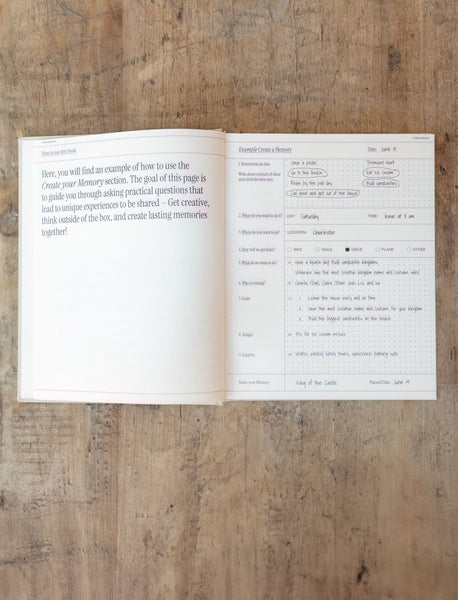 How to use this book
Here, you will find an example of how to use the
Create your Memory section. The goal of this page is
to guide you through asking practical questions that
lead to unique experiences to be shared – Get creative,
think outside of the box, and create lasting memories
together!
Example Create a Memory
Date: June 15
1. Brainstorm an idea
Have a picnic
Treasure Hunt
Write down a bunch of ideas
and circle the best ones
Go to the beach
Eat ice cream
Relax by the pool day
Build sandcastles
Slow down and get out of the house
2. When do you want to do it?
DAY: Saturday
TIME: leave at 8 am
3. Where do you want to go?
LOCATION: Charleston
4. How will we get there?
BIKE
WALK
DRIVE
PLANE
OTHER
5. What do we want to do?
Have a beach day! Build sandcastle kingdoms.
Whoever has the most creative kingdom name and costume, wins!
6. Who is coming?
Josh, Liz, and
7. Goals
1. Leave the house early and on time
2. Have the most creative name and costume for your kingdom
3. Build the biggest sandcastles on the beach
8. Budget
for ice cream prizes
9. Supplies
Water, packed lunch, towels, sunscreen, bathing suits
Name your Memory:
King of the Castle
Planned Date: June 19